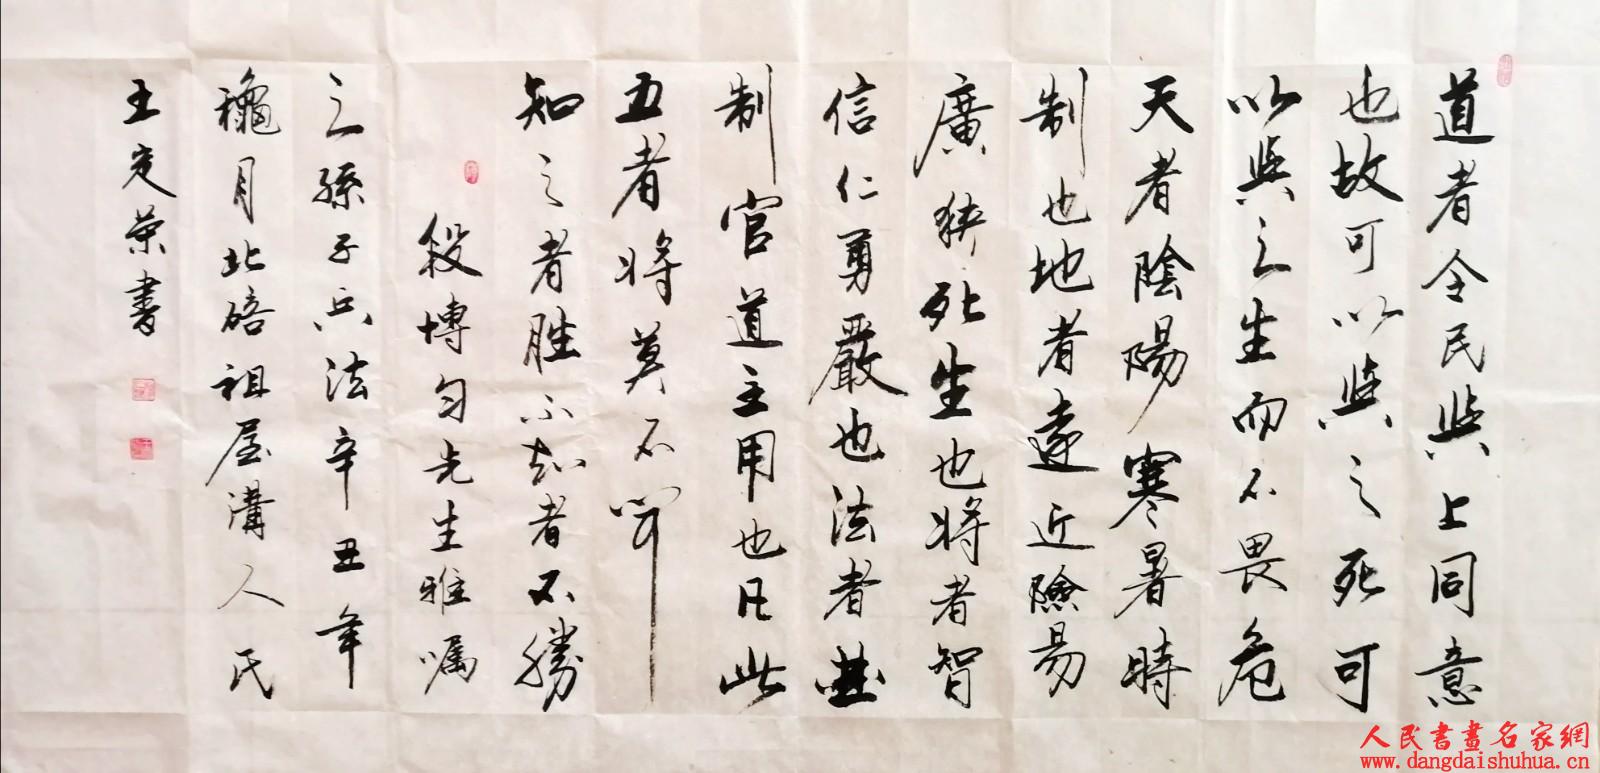 道者令民與上同意
也故可以與之死可
以與之生而不畏危
天者陰陽寒暑時
制也地者遠近險易
廣狹死生也將者智
信仁勇嚴也法者曲
制官道主用也凡此
五者將莫不聞
知之者胜不知者不勝
段博匀先生雅嘱
之孫子兵法辛丑年
龝月北碚祖屋溝人民
王定荣書
人民書畫名家網
www.dangdaishuhua.cn